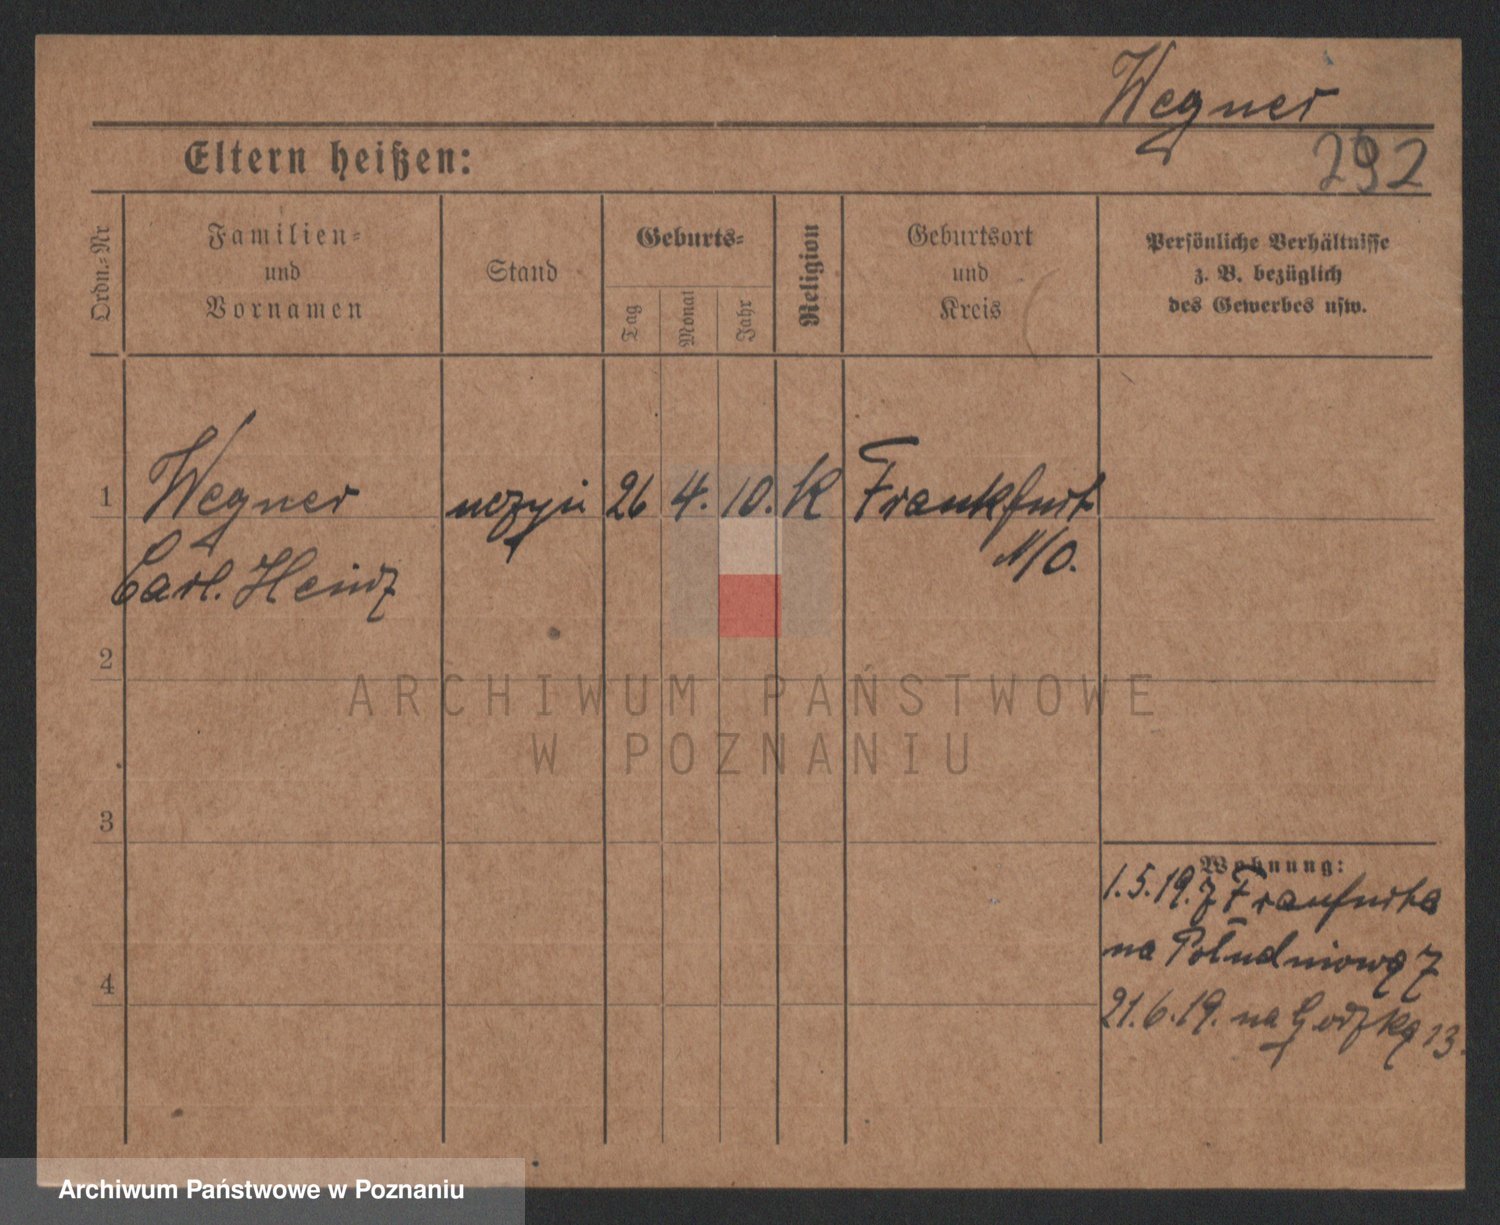 Wegner
292
Eltern heißen:
Ordn.-Nr
Familien-
und
Vornamen
Stand
Geburts-
Tag
Monat
Jahr
Religion
Geburtsort
und
Kreis
Persönliche Verhältnisse
z. B. bezüglich
des Gewerbes usw.
1 Wegner uczyń 26 4. 10. K Frankfurt
N/O.
Carl. Heinz
2
ARCHIWUM PAŃSTWOWE
W POZNANIU
3
Wohnung:
1.5.19. z Frankfurta
na Południową 7
4
21.6.19. na 13.
Archiwum Państwowe w Poznaniu